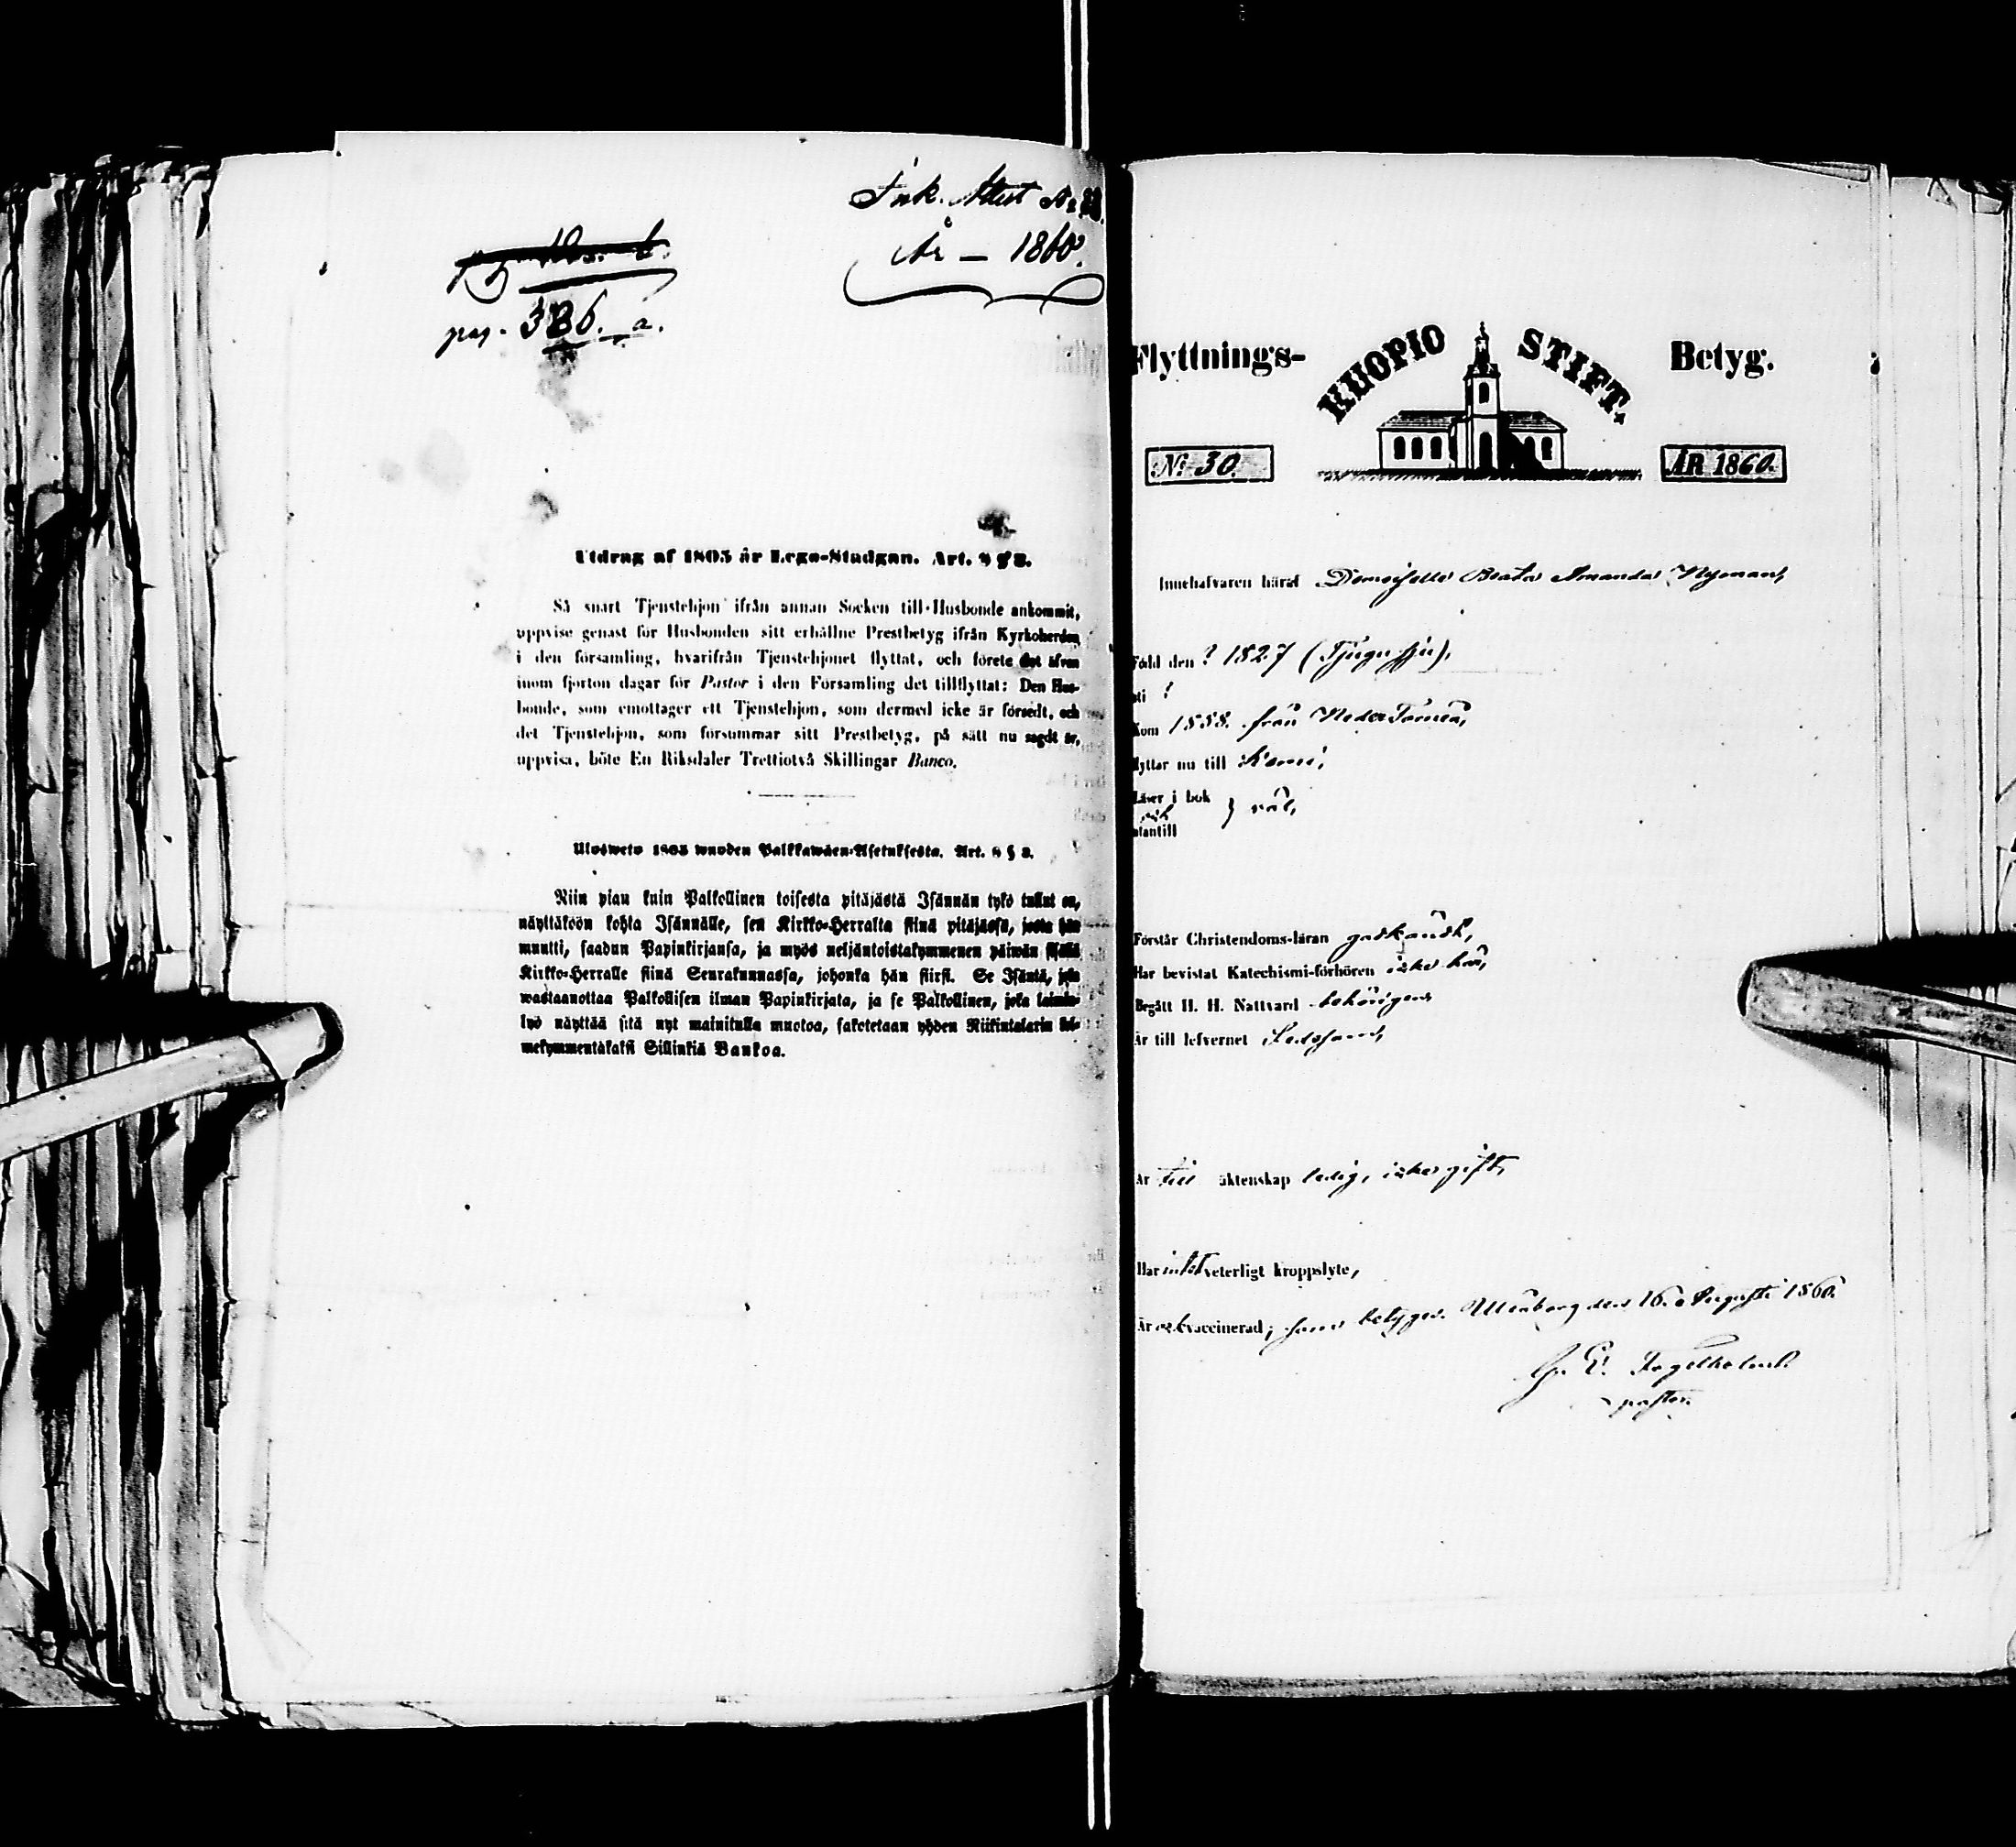 Ink. Attest No
År — 1860.
pag. 326. a.
Utdrag af 1805 år Lego-Stadgan. Art. 8 § 8.
Så snart Tjenstehjon ifrån annan Socken till Husbonde ankommit,
uppvise genast för Husbonden sitt erhållne Prestbetyg ifrån Kyrkoherden
i den församling, hvarifrån Tjenstehjonet flyttat, och förete det äfven
inom fjorton dagar för Pastor i den Församling det tillflyttat: Den Hus-
bonde, som emottager ett Tjenstehjon, som dermed icke är försedt, och
det Tjenstehjon, som försummar sitt Prestbetyg, på sätt nu sagdt är,
uppvisa, böte En Riksdaler Trettiotvå Skillingar Banco.
Ulosweto 1805 wuoden Palkkawäen-Asetuksesta. Art. 8 § 8.
Niin pian kuin Palkollinen toisesta pitäjästä Isännän tykö tullut on,
näyttäköön kohta Isännälle, sen Kirkko-Herralta siinä pitäjässä, josta hän
muutti, saadun Papinkirjansa, ja myös neljäntoistakymmenen päiwän sisällä
Kirkko-Herralle siinä Seurakunnassa, johonka hän siirsi. Se Isäntä, joka
wastaanottaa Palkollisen ilman Papinkirjata, ja se Palkollinen, joka laimin-
lyö näyttää sitä nyt mainitulla muotoa, sakotetaan yhden Riikintalarin kol-
mekymmentäkaksi Sillinkiä Bankoa.
Flyttnings- KUOPIO STIFT. Betyg.
No 30. ÅR 1860.
Innehafvaren häraf Demoiselle Beata Amanda Nyman,
Född den ? 1827 (Tjugusju),
uti ?
Kom 1858. från Neder Torneå,
flyttar nu till Kemi;
Läser i bok } väl,
och
utantill
Förstår Christendoms-läran godkändt,
Har bevistat Katechismi-förhören icke här,
Begått H. H. Nattvard behörigen
Är till lefvernet Sedesam,
Är till äktenskap ledig, icke gift,
Har intet veterligt kroppslyte,
Är och vaccinerad; som betygar. Uleåborg den 16. Augusti 1860.
E. Fogelholm
pastor.